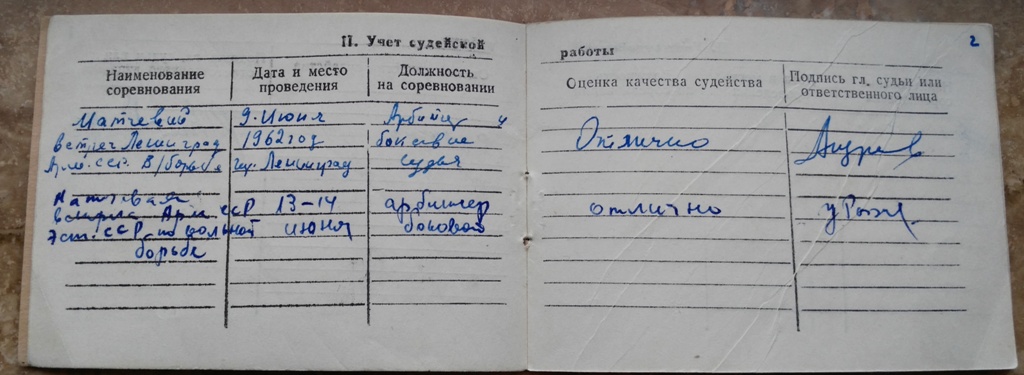 II. Учет судейской работы
2
Наименование соревнования
Дата и место проведения
Должность на соревновании
Оценка качества судейства
Подпись гл. судьи или ответственного лица
Матчевый 9. Июня Арбитр и
встреч Ленинград 1962 год боковые Отлично
Арм. сср. В/борьба гор. Ленинград судья
13-14 арбитр отлично
Эст. ССР по вольной июня боковой
борьбе